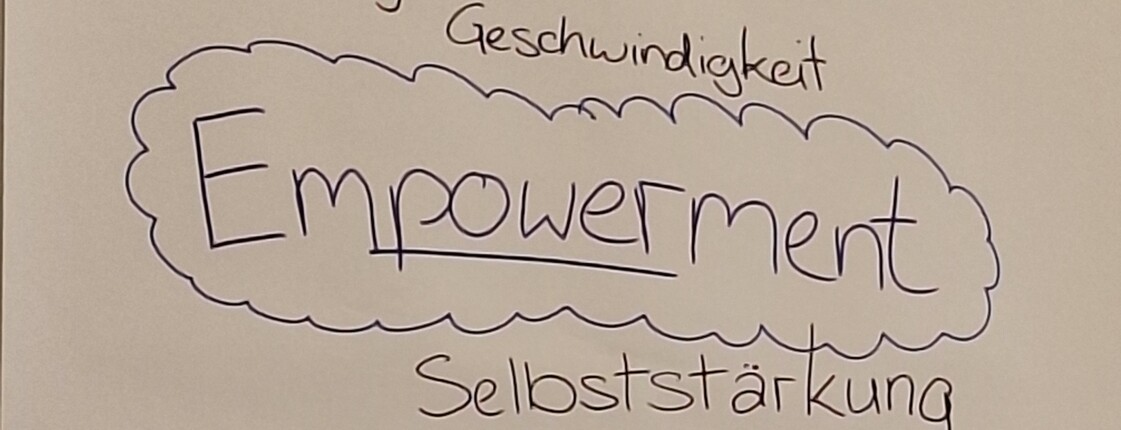 Geschwindigkeit
Empowerment
Selbststärkung